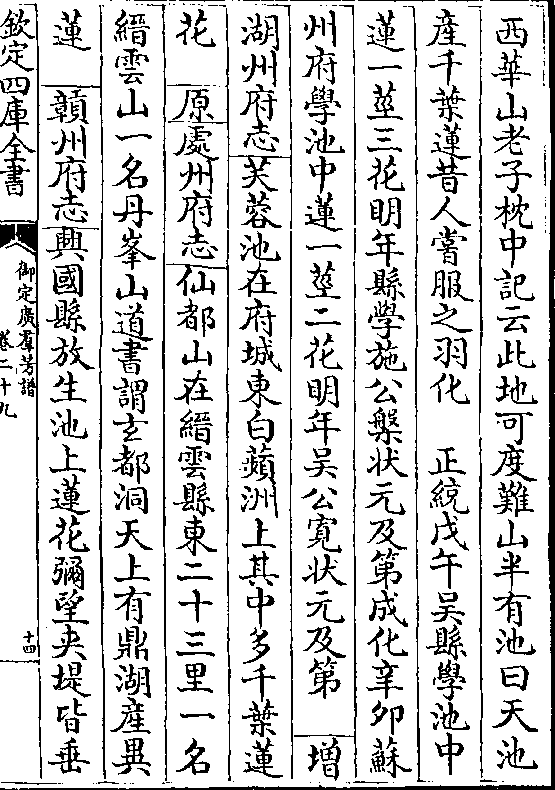 西華山老子枕中記云此地可度難山半有池曰天池
産千葉蓮昔人嘗服之羽化　正統戊午吳縣學池中
蓮一莖三花明年縣學施公槃状元及第成化辛卯蘇
州府學池中蓮一莖二花明年吳公寛状元及第　增
湖州府志芙蓉池在府城東白蘋洲上其中多千葉蓮
花　原處州府志仙都山在縉雲縣東二十三里一名
縉雲山一名丹峯山道書謂玄都洞天上有鼎湖産異
蓮　贛州府志興國縣放生池上蓮花彌望夾堤皆垂
欽定四庫全書
御定廣羣芳譜
卷二十九
十四